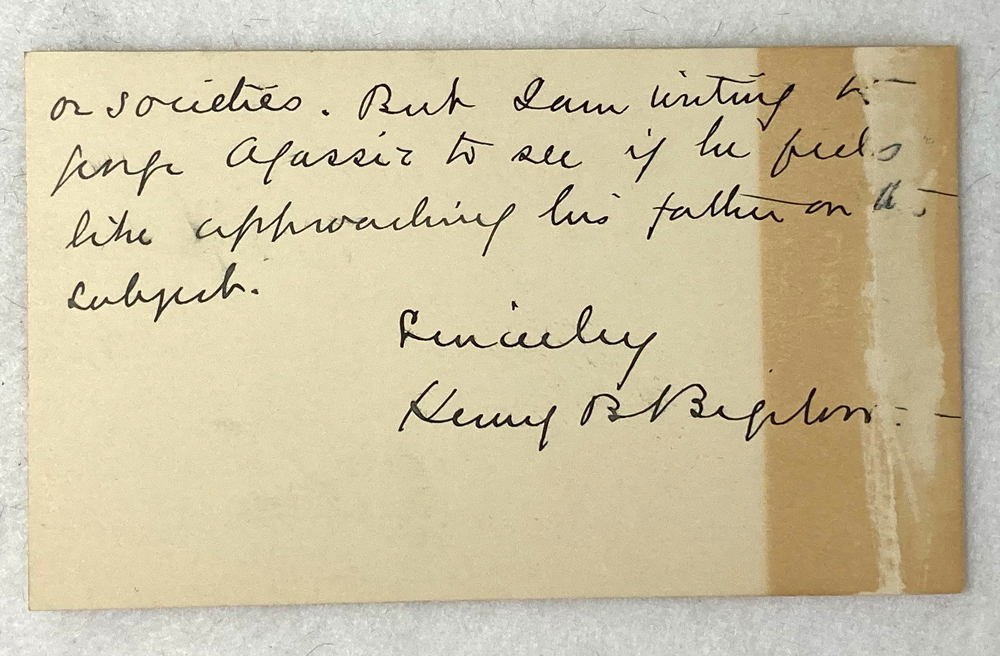 or societies. But I am writing to
George Agassiz to see if he feels
like approaching his father on the
subject.
Sincerely
Henry B Bigelow